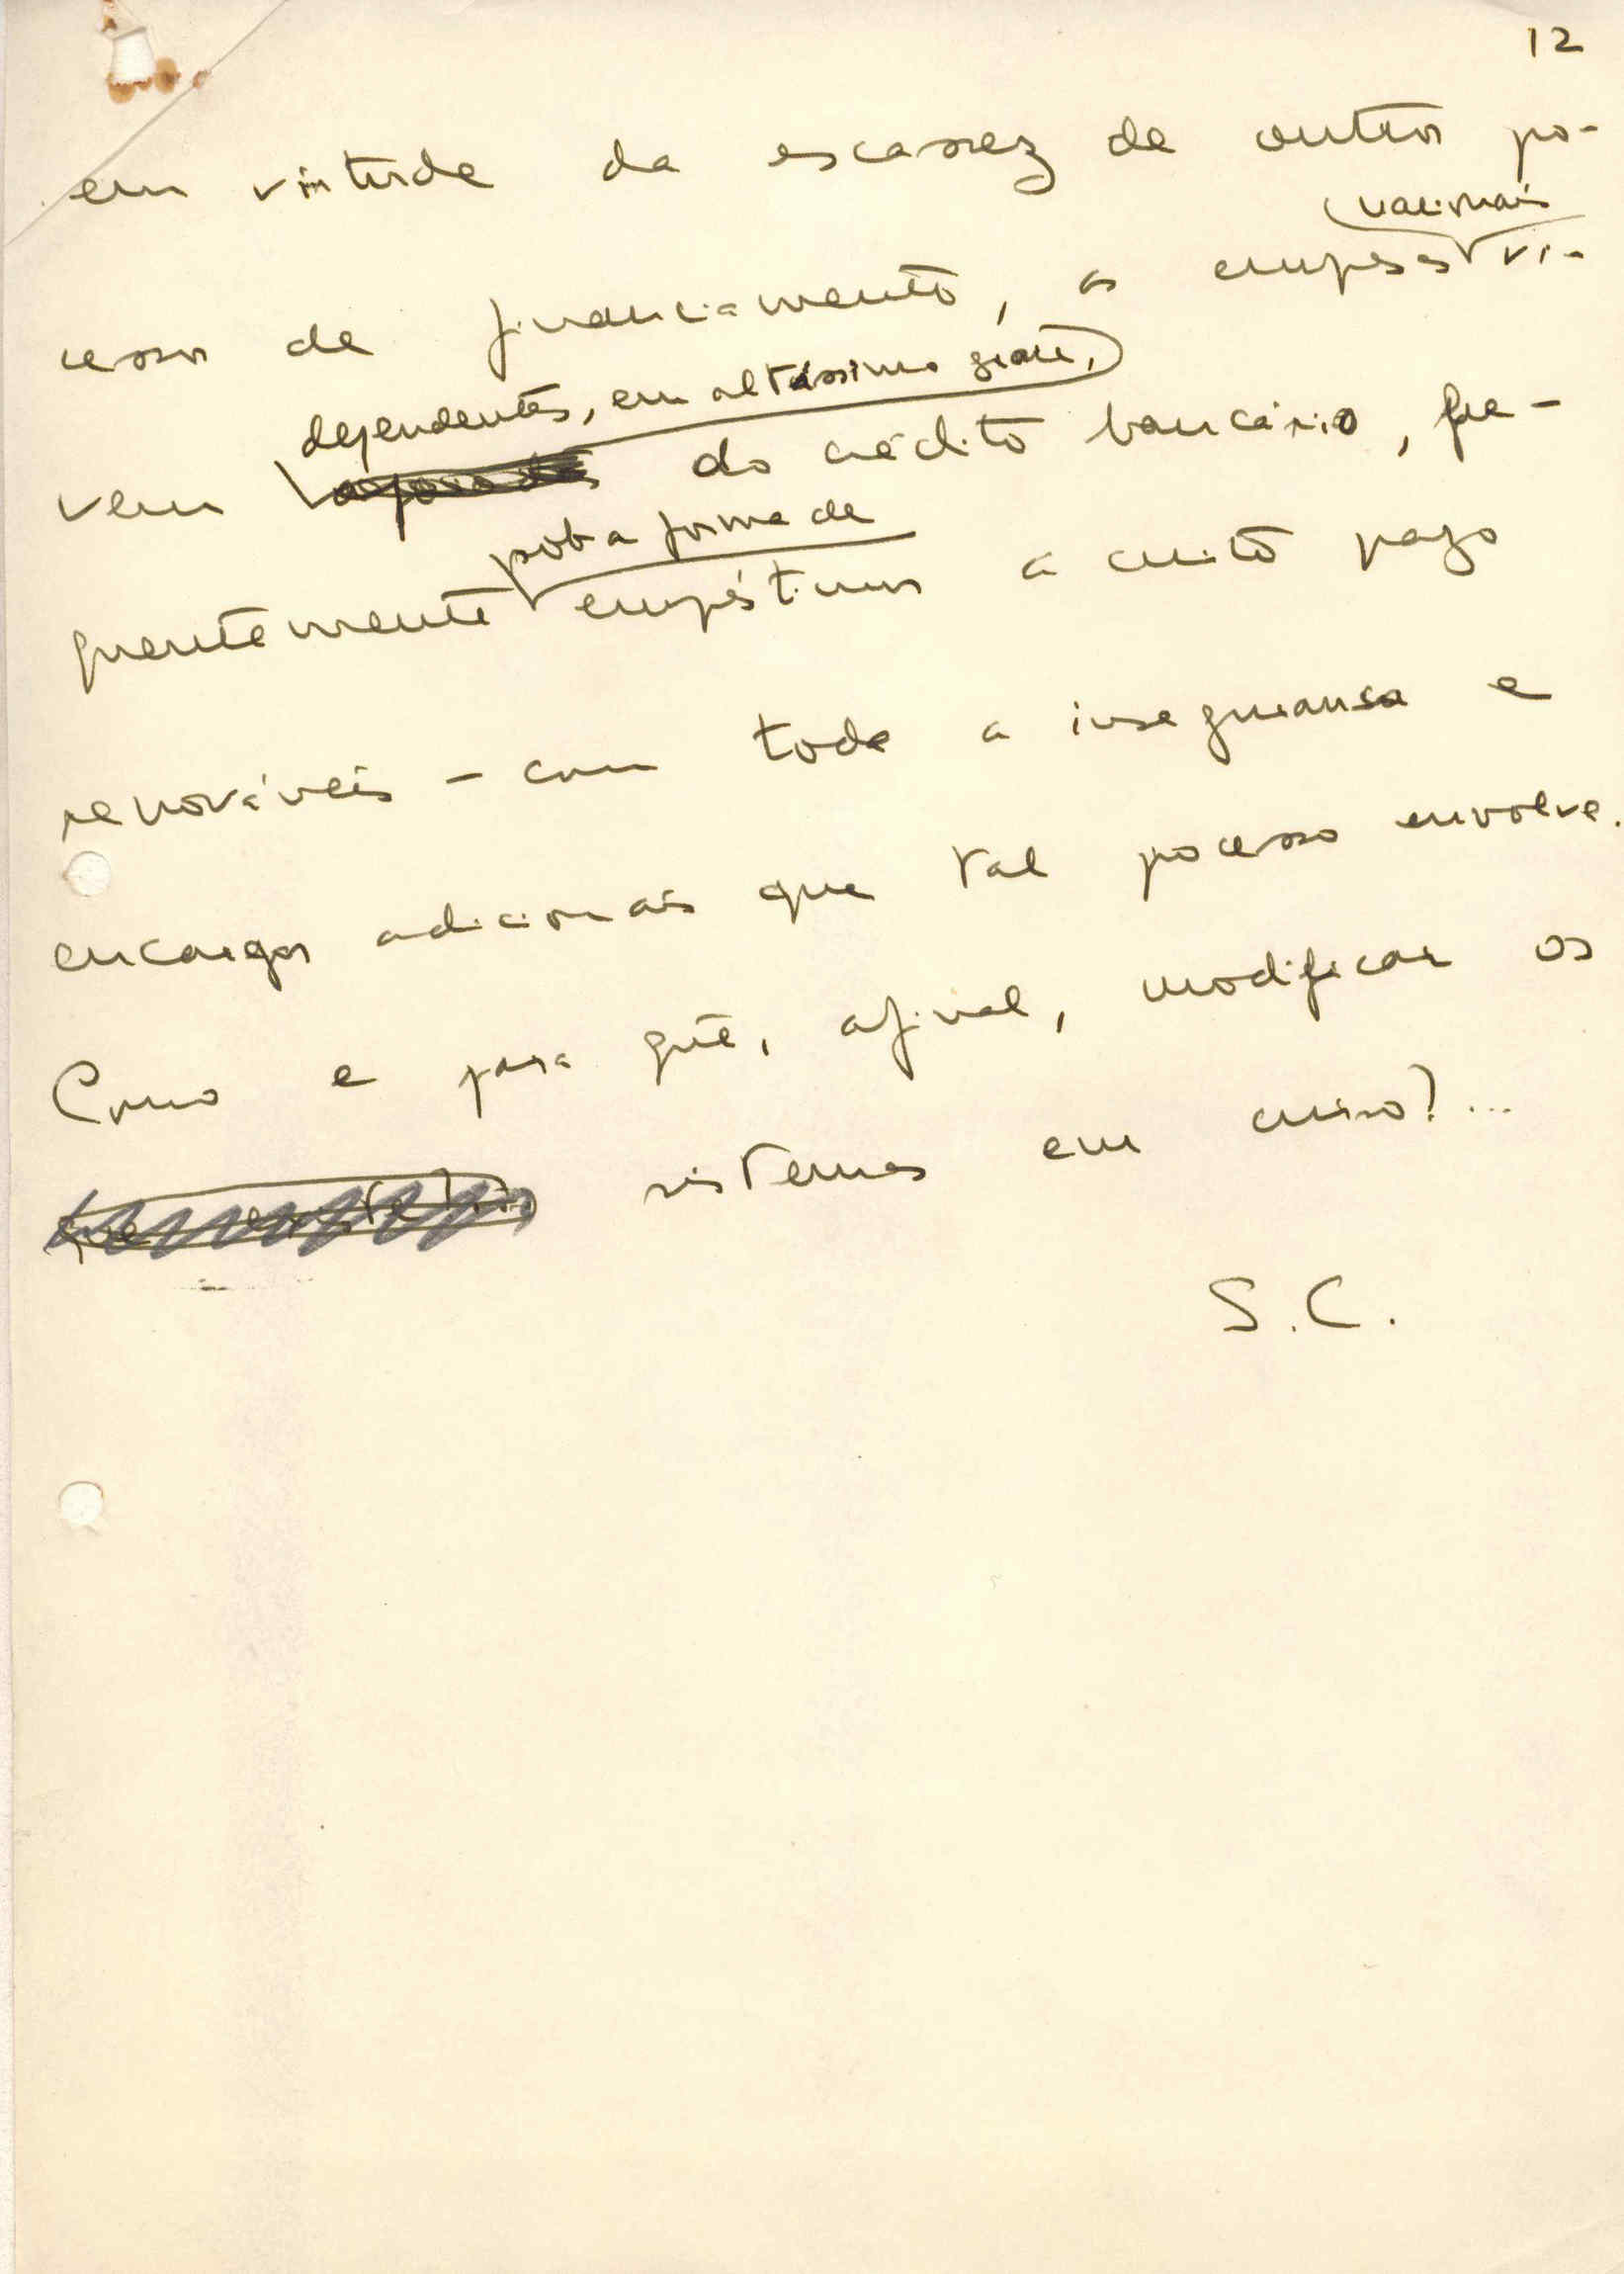 12
em virtude da escassez de outros pro-
nacionais
cessos de financiamento, as empresas vi-
dependentes, em altíssimo grau,
vem do crédito bancário, fre-
sob a forma de
quentemente empréstimos a curto prazo
renováveis - com toda a insegurança e
encargos adicionais que tal processo envolve.
Como e para quê, afinal, modificar os
sistemas em curso?...
S.C.